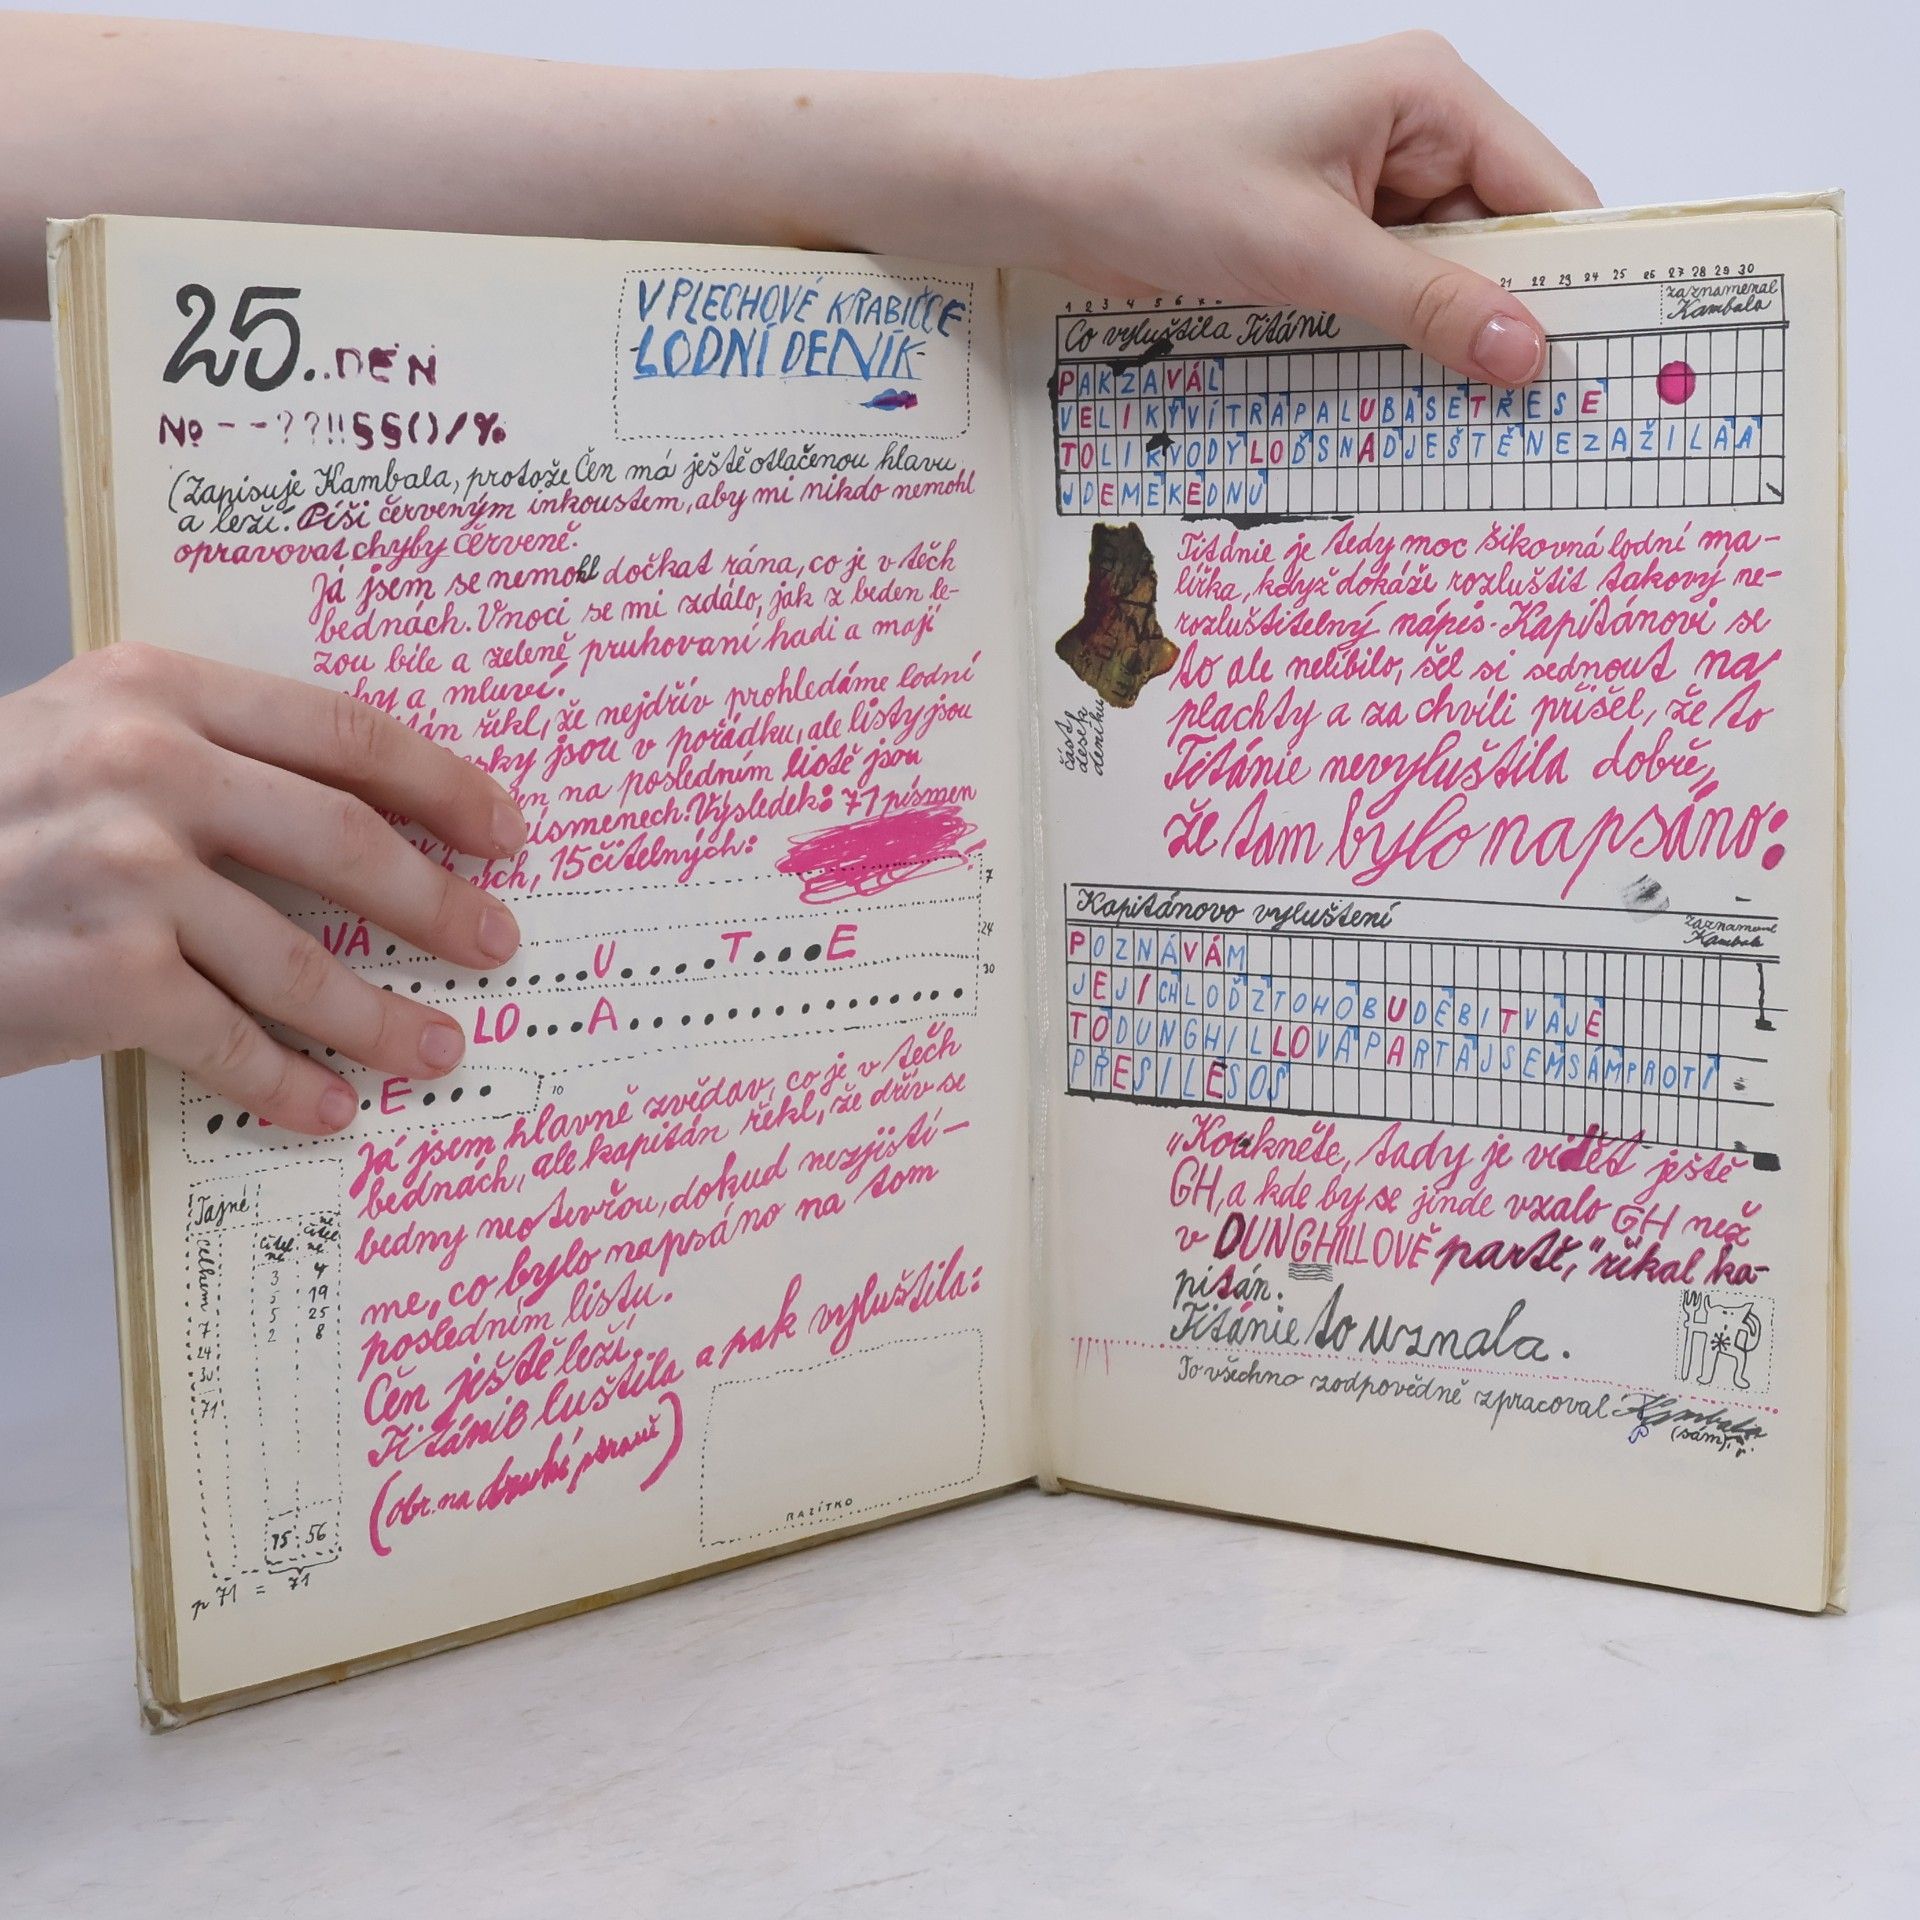 25..DEN
No - - ? ? !! §§ ( ) / %
V PLECHOVÉ KRABIČCE
LODNÍ DENÍK
(Zapisuje Kambala, protože Čen má ještě otlačenou hlavu
a leží. Píši červeným inkoustem, aby mi nikdo nemohl
opravovat chyby červeně.
Já jsem se nemohl dočkat rána, co je v těch
bednách. V noci se mi zdálo, jak z beden le-
zou bíle a zeleně pruhovaní hadi a mají
a mluví.
řekl, že nejdřív prohledáme lodní
jsou v pořádku, ale listy jsou
na posledním listě jsou
Výsledek: 71 písmen
15 čitelných:
7
VÁ .
24
U . . . . T . . . E
30
LO . . . A . . . . . . . . . . . . .
10
. E . . . .
Já jsem hlavně zvědav, co je v těch
bednách, ale kapitán řekl, že dřív se
bedny neotevřou, dokud nezjistí-
me, co bylo napsáno na tom
posledním listu.
Čen ještě leží.
Titánie luštila a pak vyluštila:
(obr. na druhé straně)
Tajné
celkem
čitel né
ne čitel né
3 4
5 19
5 25
2 8
7
24
30
71
15 56
71 = 71
RAZÍTKO
1 2 3 4 5 6 7
21 22 23 24 25 26 27 28 29 30
Co vyluštila Titánie
zaznamenal
Kambala
PAKZAVÁL
VELIKÝVÍTRAPALUBASETŘESE
TOLIKVODYLOĎSNADJEŠTĚNEZAŽILAA
JDEMEKEDNU
Titánie je tedy moc šikovná lodní ma-
lířka, když dokáže rozluštit takový ne-
rozluštitelný nápis. Kapitánovi se
to ale nelíbilo, šel si sednout na
plachty a za chvíli přišel, že to
Titánie nevyluštila dobře,
že tam bylo napsáno:
část
desek
deníku
Kapitánovo vyluštění
zaznamenal
Kambala
POZNÁVÁM
JEJICHLOĎZTOHOBUDEBITVAJE
TODUNGHILLOVAPARTAJSEMSÁMPROTI
PŘESILESOS
"Koukněte, tady je vidět ještě
GH, a kde by se jinde vzalo GH než
v DUNGHILLOVĚ partě," říkal ka-
pitán.
Titánie to uznala.
To všechno zodpovědně zpracoval Kambala
(sám)